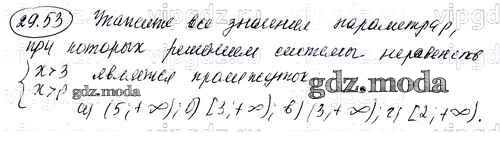 29.53 Укажите все значения параметра p,
при которых решением системы неравенств
{x>3 является промежуток
x>p
а) (5;+∞); б) [3;+∞); в) (3;+∞); г) [2;+∞).
gdz.moda
gdz.moda